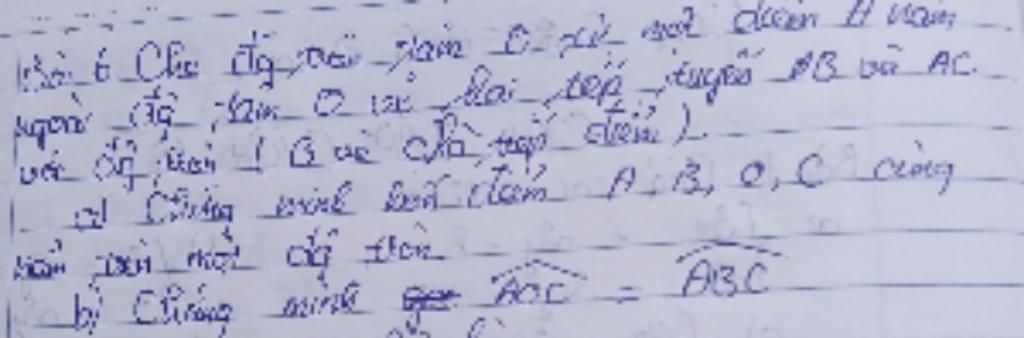 Bài 6 Cho đg tròn tâm O từ một điểm A nằm
ngoài đg tâm O vẽ hai tiếp tuyến AB và AC
với đg tròn ( B và C là tiếp điểm )
a) Chứng minh bốn điểm A, B, O, C cùng
nằm trên một đg tròn
b) Chứng minh AOC = ABC